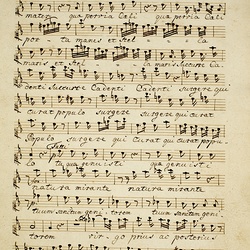 mater qua pervia Cali qua pervia Cali
por ta manis et Stel - - la
maris et Stel - - la maris Succurre Ca-
denti Succurre Cadenti Cadenti Surgere qui
curat populo Surgere Surgere qui curat
Populo surgere qui Curat qui curat popu-
lo tu quæ genuisti quæ genuisti
natura mirante natura mirante
tuum sanctum geni - torem tuum sanctum geni-
torem vir - go prius ac posterius